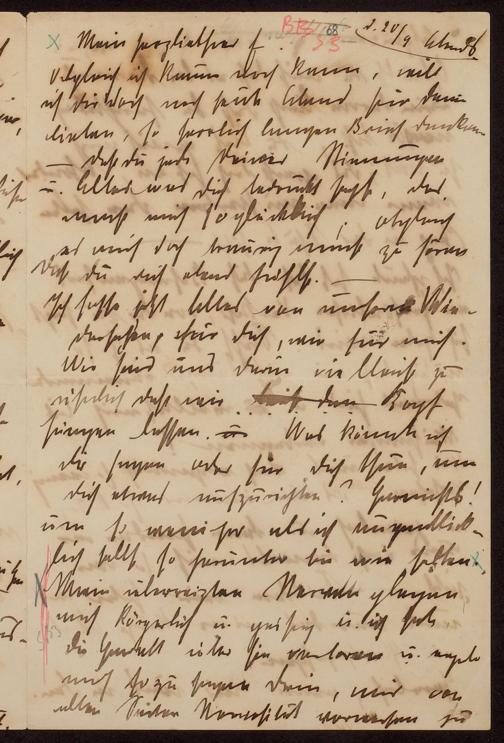 BBS 68
33
d. 20/9 Abends
Mein herzliebster f.
Obgleich ich kaum noch kann, will
ich dir doch noch heute Abend für deinen
lieben, so herrlich langen Brief danken
— daß du jede Deiner Stimmungen
u. Alles was dich bedrückt sagst, das
macht mich so glücklich, obgleich
es mich doch traurig macht zu hören
daß du dich elend fühlst. —
Ich hoffe jetzt Alles von unserem Wie-
dersehen, für dich, wie für mich.
Wir sind uns darin vielleicht zu
daß wir Kopf
hängen lassen. — Was könnte ich
dir sagen oder für dich thun, um
dich etwas aufzurichten? Garnichts!
um so weniger als ich augenblick-
lich selbst so herunter bin wie selten.
Meine überreizten Nerven plagen
mich körperlich u. geistig u. ich habe
die Gewalt über sie verloren u.
mich so zu sagen darin, mir von
allen Seiten Nervosität vorwerfen zu